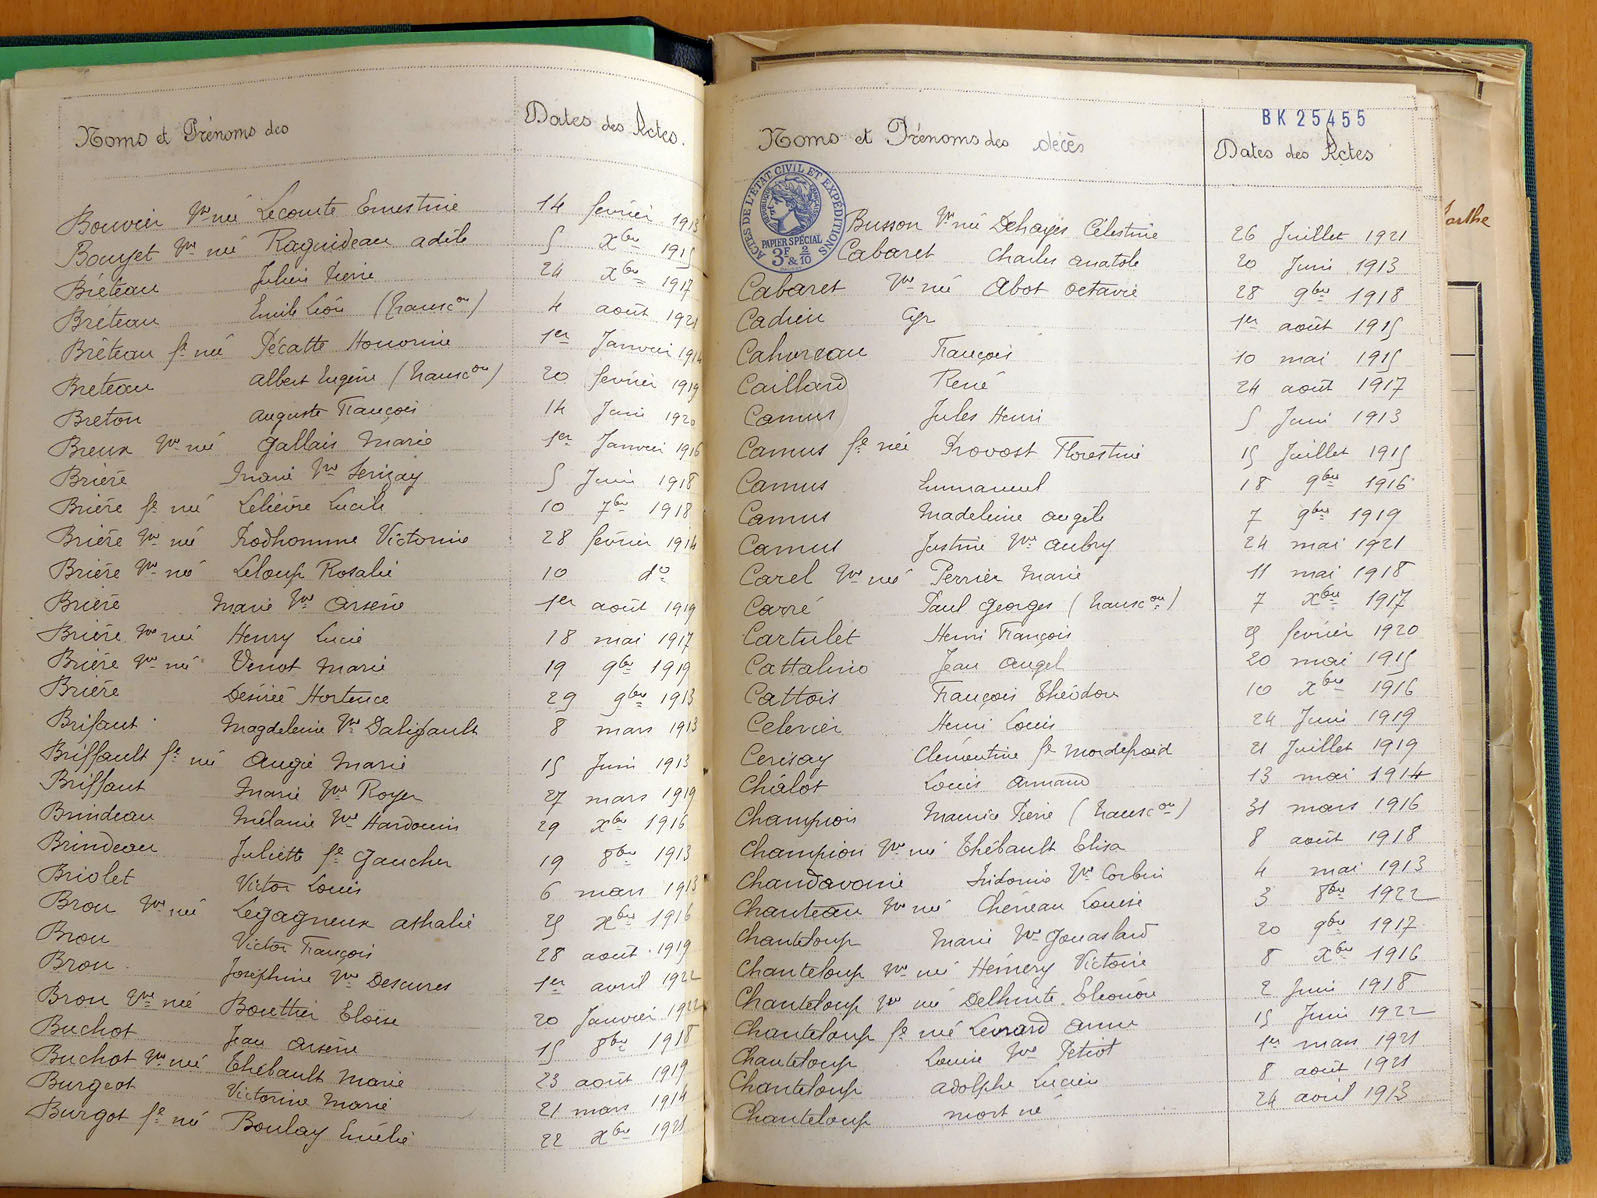 Noms et Prénoms des
Dates des Actes.
Bouvier Vve née Lecomte Ernestine 14 fevrier 1913
Bouyet Vve née Raguideau adèle 5 Xbre 1915
Bréteau Julien Pierre 24 Xbre 1917
Breteau Emile Léon (transcon) 4 août 1921
Brêteau fe née Pécatte Honorine 1er Janvier 1914
Breteau albert Eugène (transcon) 20 fevrier 1919
Breton auguste François 14 Juin 1920
Breux Vve née Gallais Marie 1er Janvier 1916
Brière Marie Vve Serizay 5 Juin 1918
Brière fe née Lelièvre Lucile 10 7bre 1918
Brière Vve née Prodhomme Victorine 28 fevrier 1914
Brière Vve née Leloup Rosalie 10 do
Brière Marie Vve Arsène 1er août 1919
Brière Vve née Henry Lucie 18 mai 1917
Brière Vve née Venot Marie 19 9bre 1919
Brière Désirée Hortence 29 9bre 1913
Brifaut Magdeleine Vve Dalifault 8 mars 1913
Briffault fe née Augié Marie 15 Juin 1913
Briffaut Marie Vve Royer 27 mars 1919
Brindeau Mélanie Vve Hardouin 29 Xbre 1916
Brindeau Juliette fe Gaucher 19 8bre 1913
Briolet Victor Louis 6 mars 1913
Brou Vve née Legagneux athalie 25 Xbre 1916
Brou Victor François 28 août 1919
Brou Joséphine Vve Descures 1er avril 1922
Brou Vve née Bouttier Eloïse 20 Janvier 1922
Buchot Jean Arsène 15 8bre 1918
Buchot Vve née Thébault Marie 23 août 1919
Burgeot Victorine Marie 21 mars 1914
Burgot fe née Boulay Emélie 22 Xbre 1921
BK 25455
Noms et Prénoms des décès
Dates des Actes
ACTES DE L'ETAT CIVIL ET EXPÉDITIONS
PAPIER SPÉCIAL
3F & 2/10
Busson Vve née Dehayes Célestine 26 Juillet 1921
Cabaret Charles Anatole 20 Juin 1913
Cabaret Vve née Abot Octavie 28 9bre 1918
Cadieu Cyr 1er août 1915
Cahoreau François 10 mai 1915
Caillard René 24 août 1917
Camus Jules Henri 5 Juin 1913
Camus fe née Provost Florestine 15 Juillet 1915
Camus Emmanuel 18 9bre 1916
Camus Madeleine angèle 7 9bre 1919
Camus Justine Vve Aubry 24 mai 1921
Carel Vve née Perrier Marie 11 mai 1918
Carré Paul Georges (transcon) 7 Xbre 1917
Cartulet Henri François 25 fevrier 1920
Cattalino Jean Angel 20 mai 1915
Cattois François Théodore 10 Xbre 1916
Celerier Henri Louis 24 Juin 1919
Cerisay Clémentine fe Mordefroid 21 Juillet 1919
Châlot Louis Armand 13 mai 1914
Champion Maurice Pierre (transcon) 31 mars 1916
Champion Vve née Thébault Elisa 8 août 1918
Chandavoine Sidonie Vve Corbin 4 mai 1913
Chanteau Vve née Chéneau Louise 3 8bre 1922
Chanteloup Marie Vve Gouaslard 20 9bre 1917
Chanteloup Vve née Hemery Victoire 8 Xbre 1916
Chanteloup Vve née Delhinte Eléonore 2 Juin 1918
Chanteloup fe née Levrard Anne 15 Juin 1922
Chanteloup Louise Vve Petiot 1er mars 1921
Chanteloup adolphe Lucien 8 août 1921
Chanteloup mort né 24 avril 1913
Sarthe